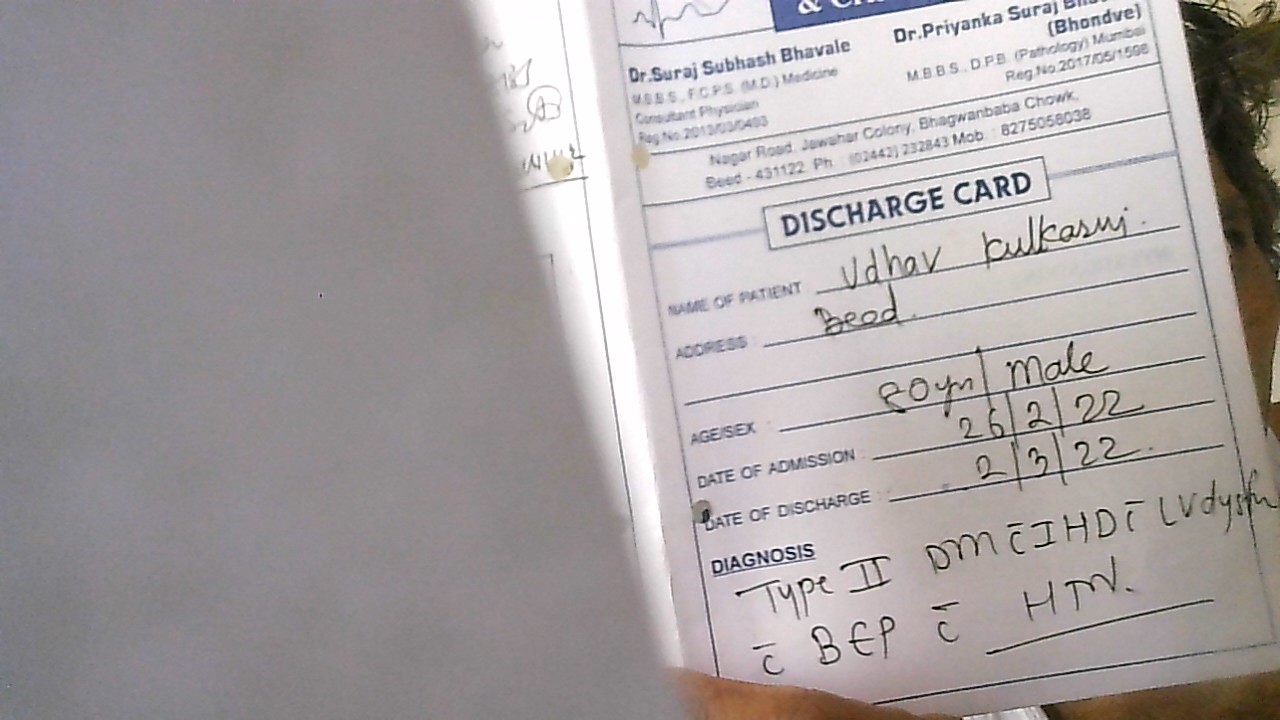 Dr.Suraj Subhash Bhavale
M.B.B.S., F.C.P.S. (M.D.) Medicine
Consultant Physician
Reg.No.2013/03/0493
Dr.Priyanka Suraj
(Bhondve)
M.B.B.S., D.P.B. (Pathology) Mumbai
Reg.No.2017/05/1598
Nagar Road, Jawahar Colony, Bhagwanbaba Chowk,
Beed - 431122. Ph. : (02442) 232843 Mob. : 8275058038
DISCHARGE CARD
NAME OF PATIENT : Udhav Kulkarni.
ADDRESS : Beed.
AGE/SEX : 80yrs | Male
DATE OF ADMISSION : 26/2/22
DATE OF DISCHARGE : 2/3/22.
DIAGNOSIS
Type II DM c̄ IHD c̄ LVdysfn
c̄ BEP c̄ HTN.